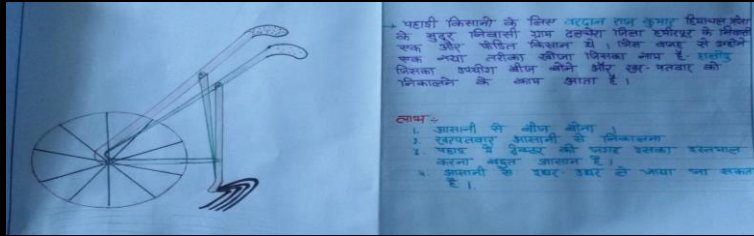 → पहाडी किसानो के लिए वरदान राज कुमार हिमाचल प्रदेश
के सुदूर निवासी ग्राम दलचेरा जिला हमीरपुर के निवासी
एक और पीडित किसान थे । जिस वजह से उन्होंने
एक नया तरीका खोजा जिसका नाम है-
जिसका उपयोग बीज बोने और खर-पतवार को
निकालने के काम आता है ।
लाभ :-
1. आसानी से बीज बोना ।
2. खरपतवार आसानी से निकालना
3. पहाड मे ट्रेक्टर की जगह इसका इस्तमाल
करना बहुत आसान है ।
4. आसानी से इधर-उधर ले जाया जा सकता
है ।